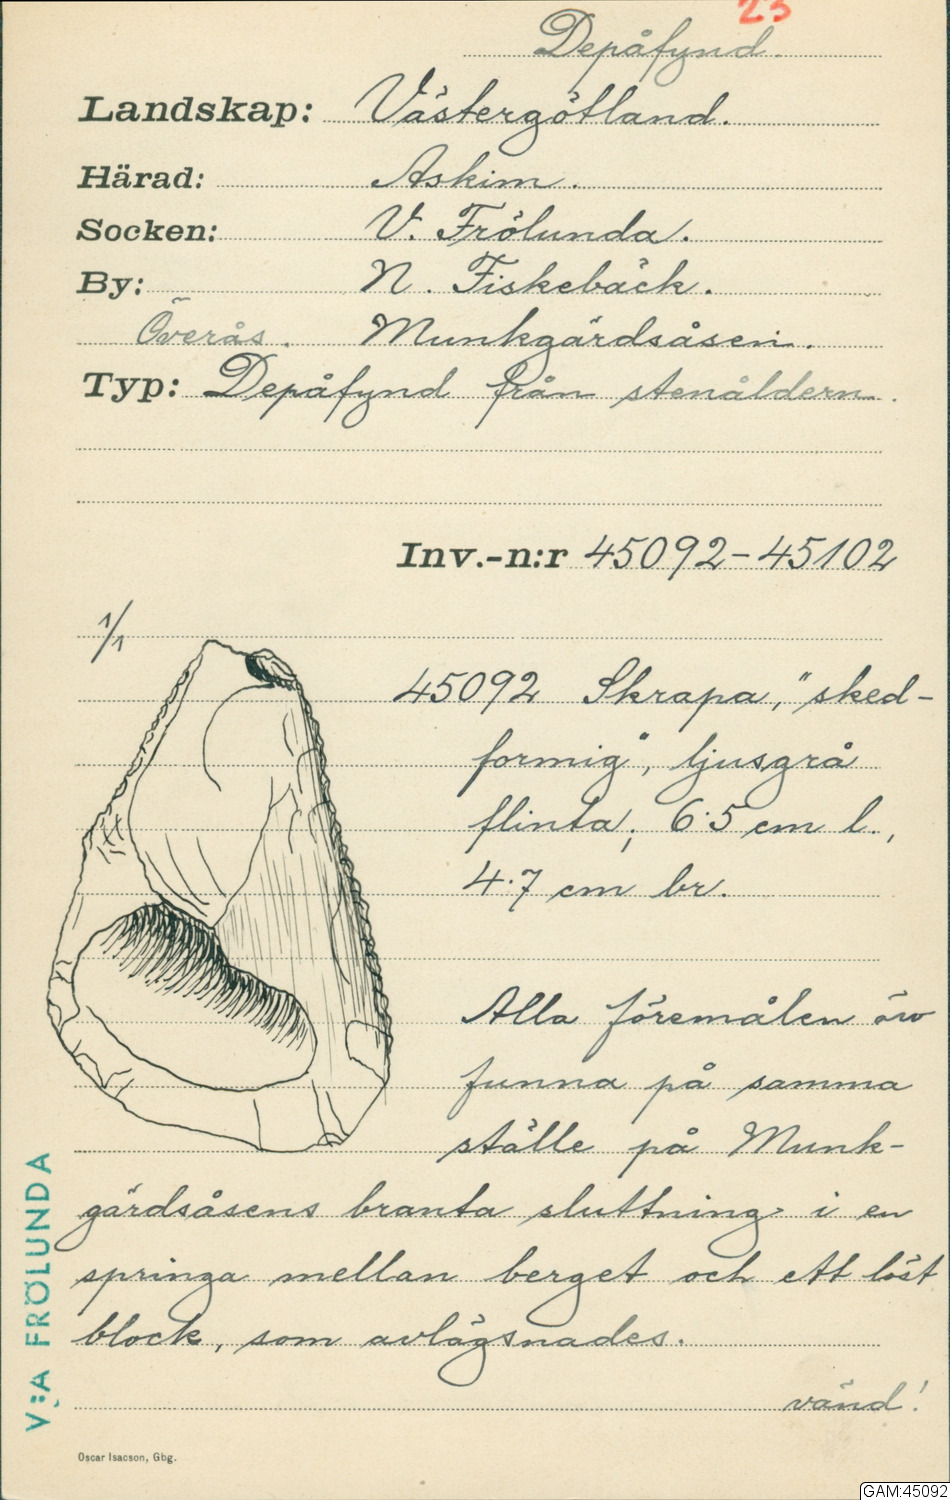 23
Depåfynd.
Landskap: Västergötland.
Härad: Askim.
Socken: V. Frölunda.
By: N. Fiskebäck.
Överås. Munkgärdsåsen.
Typ: Depåfynd från stenåldern.
Inv.-n:r 45092-45102
1/1
45092 Skrapa, "sked-
formig", ljusgrå
flinta; 6.5 cm l.,
4.7 cm br.
Alla föremålen äro
funna på samma
ställe på Munk-
gärdsåsens branta sluttning i en
springa mellan berget och ett löst
block, som avlägsnades.
vänd!
V:A FRÖLUNDA
Oscar Isacson, Gbg.
GAM:45092